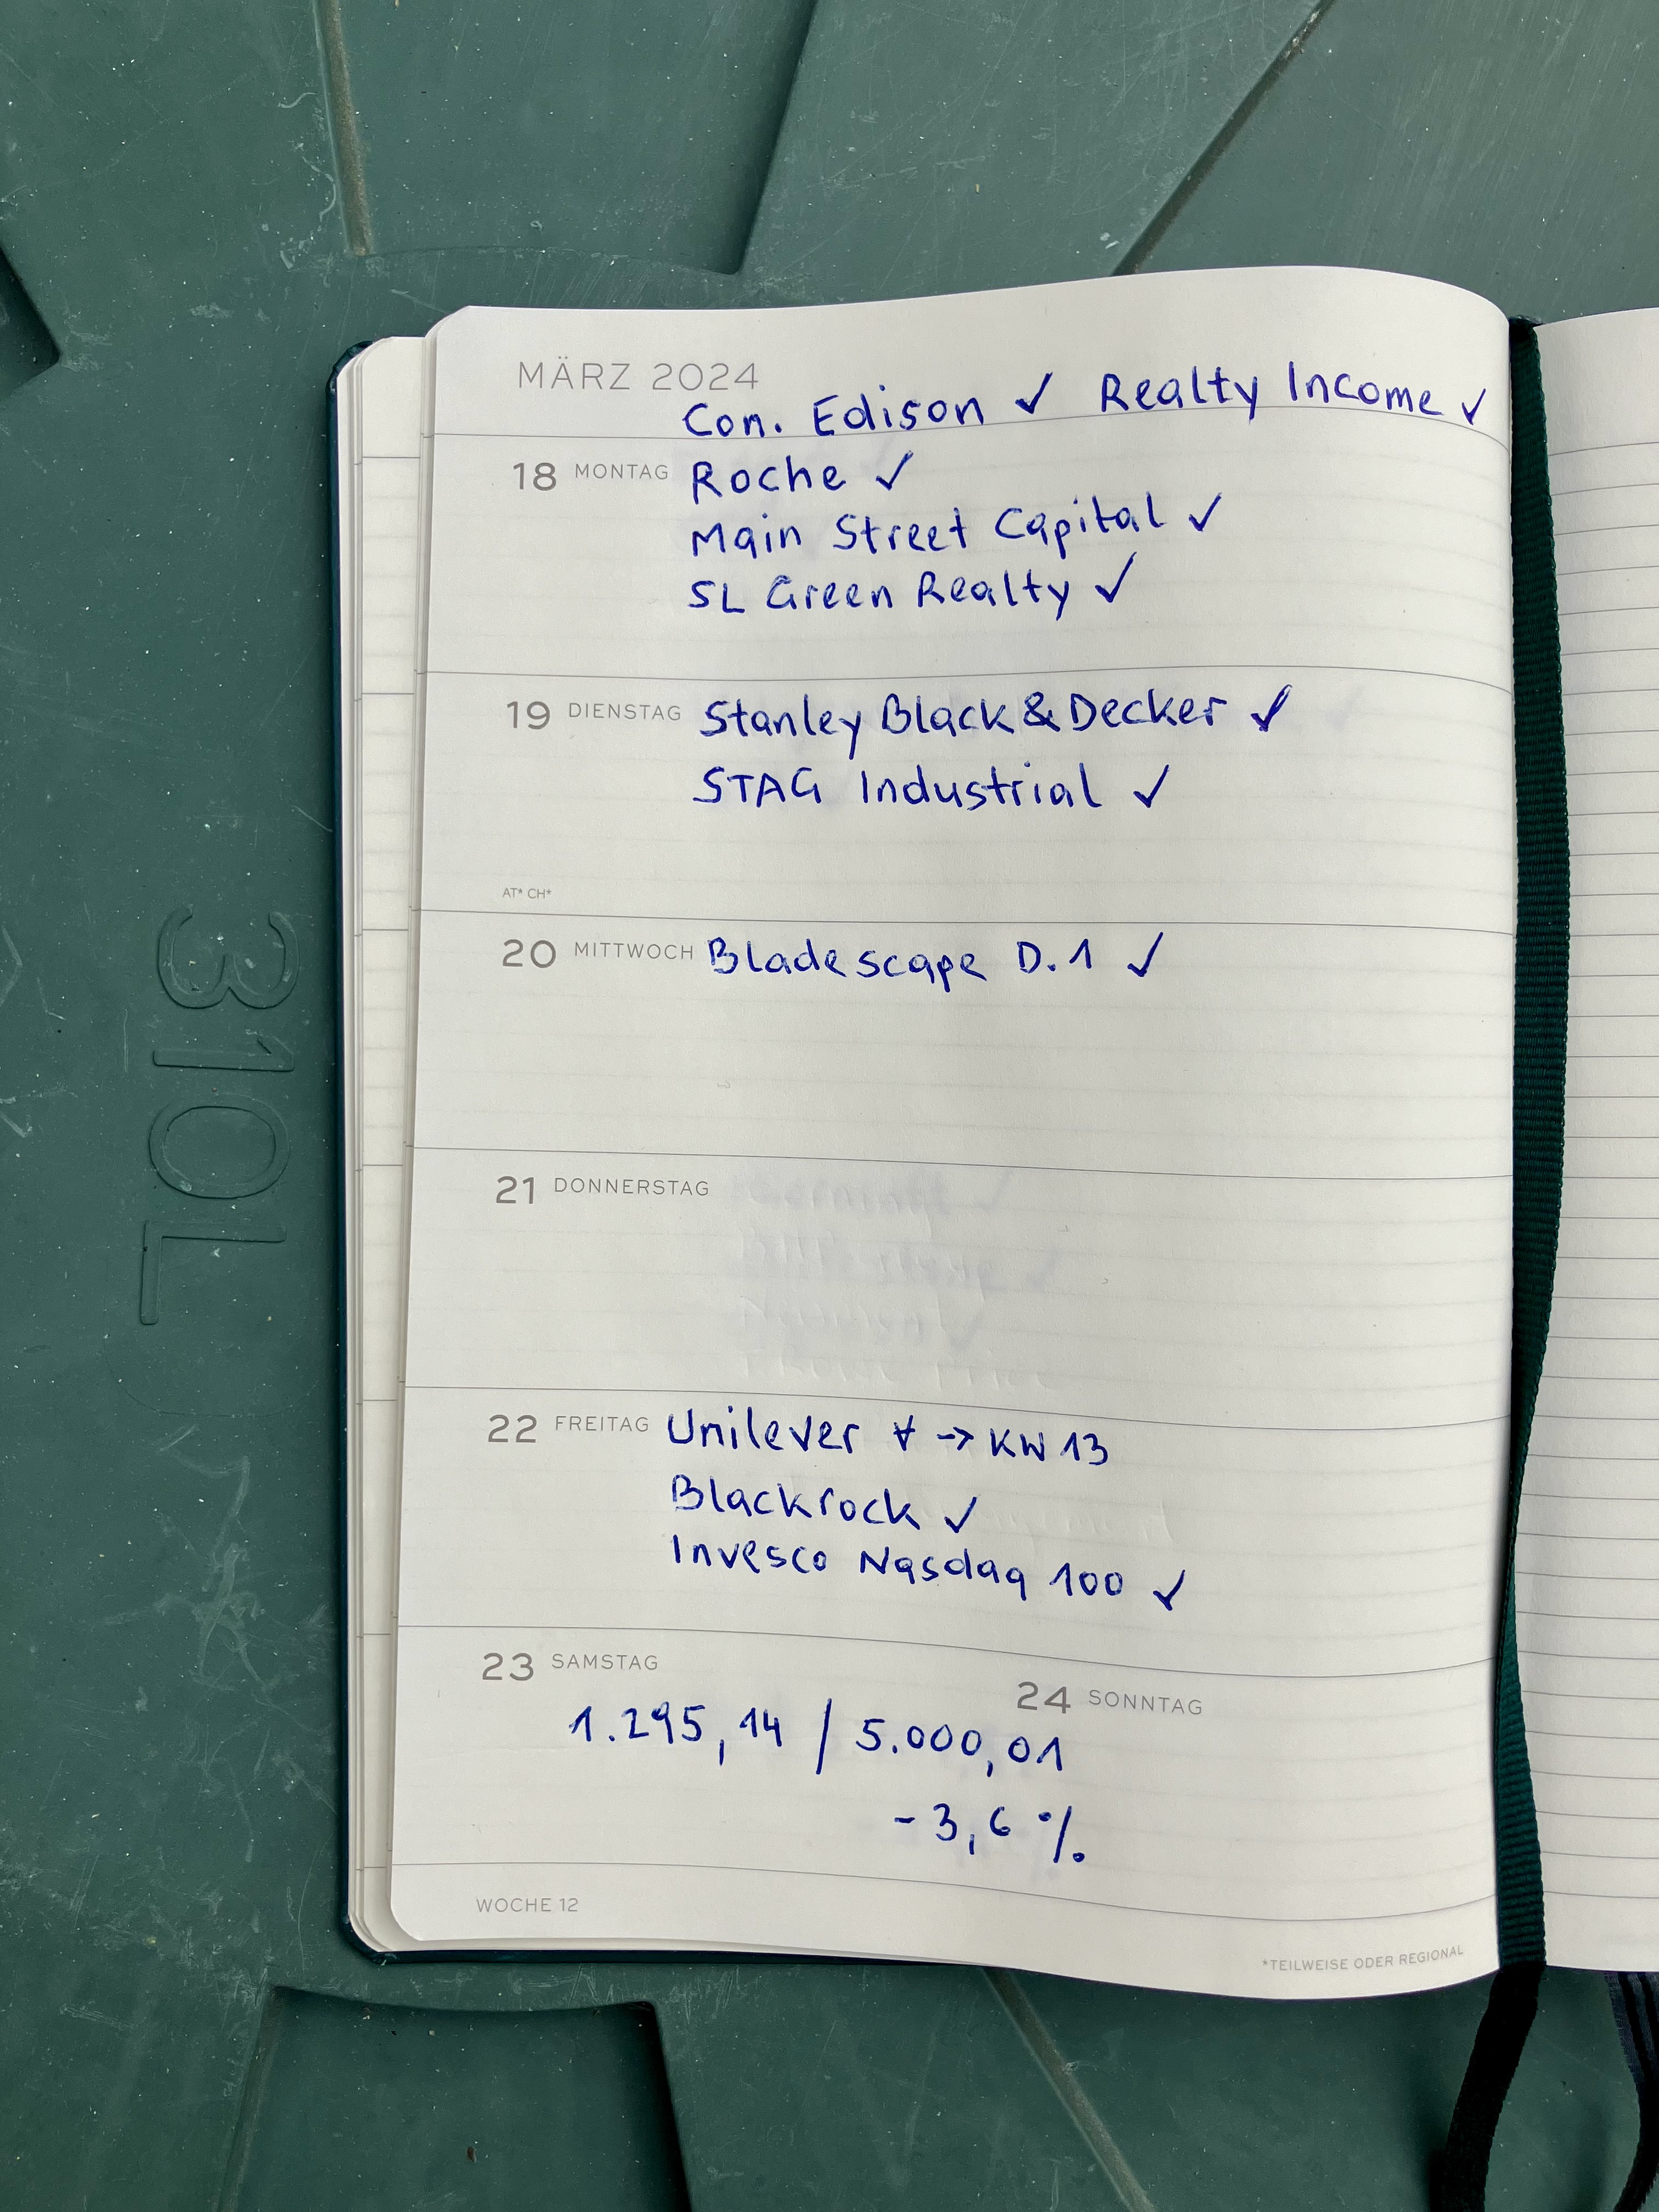 MÄRZ 2024
Con. Edison ✓ Realty Income ✓
18 MONTAG Roche ✓
Main Street Capital ✓
SL Green Realty ✓
19 DIENSTAG Stanley Black & Decker ✓
STAG Industrial ✓
AT* CH*
20 MITTWOCH Bladescape D.1 ✓
21 DONNERSTAG
22 FREITAG Unilever → KW 13
Blackrock ✓
Invesco Nasdaq 100 ✓
23 SAMSTAG
24 SONNTAG
1.295,14 / 5.000,01
-3,6 %
WOCHE 12
*TEILWEISE ODER REGIONAL
310L